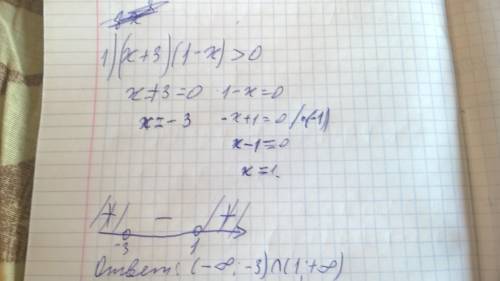 1) (x+3)(1-x)>0
x+3=0 1-x=0
x=-3 -x+1=0 /·(-1)
x-1=0
x=1.
+ - +
-3 1
Ответ: (-∞; -3)∩(1;+∞)